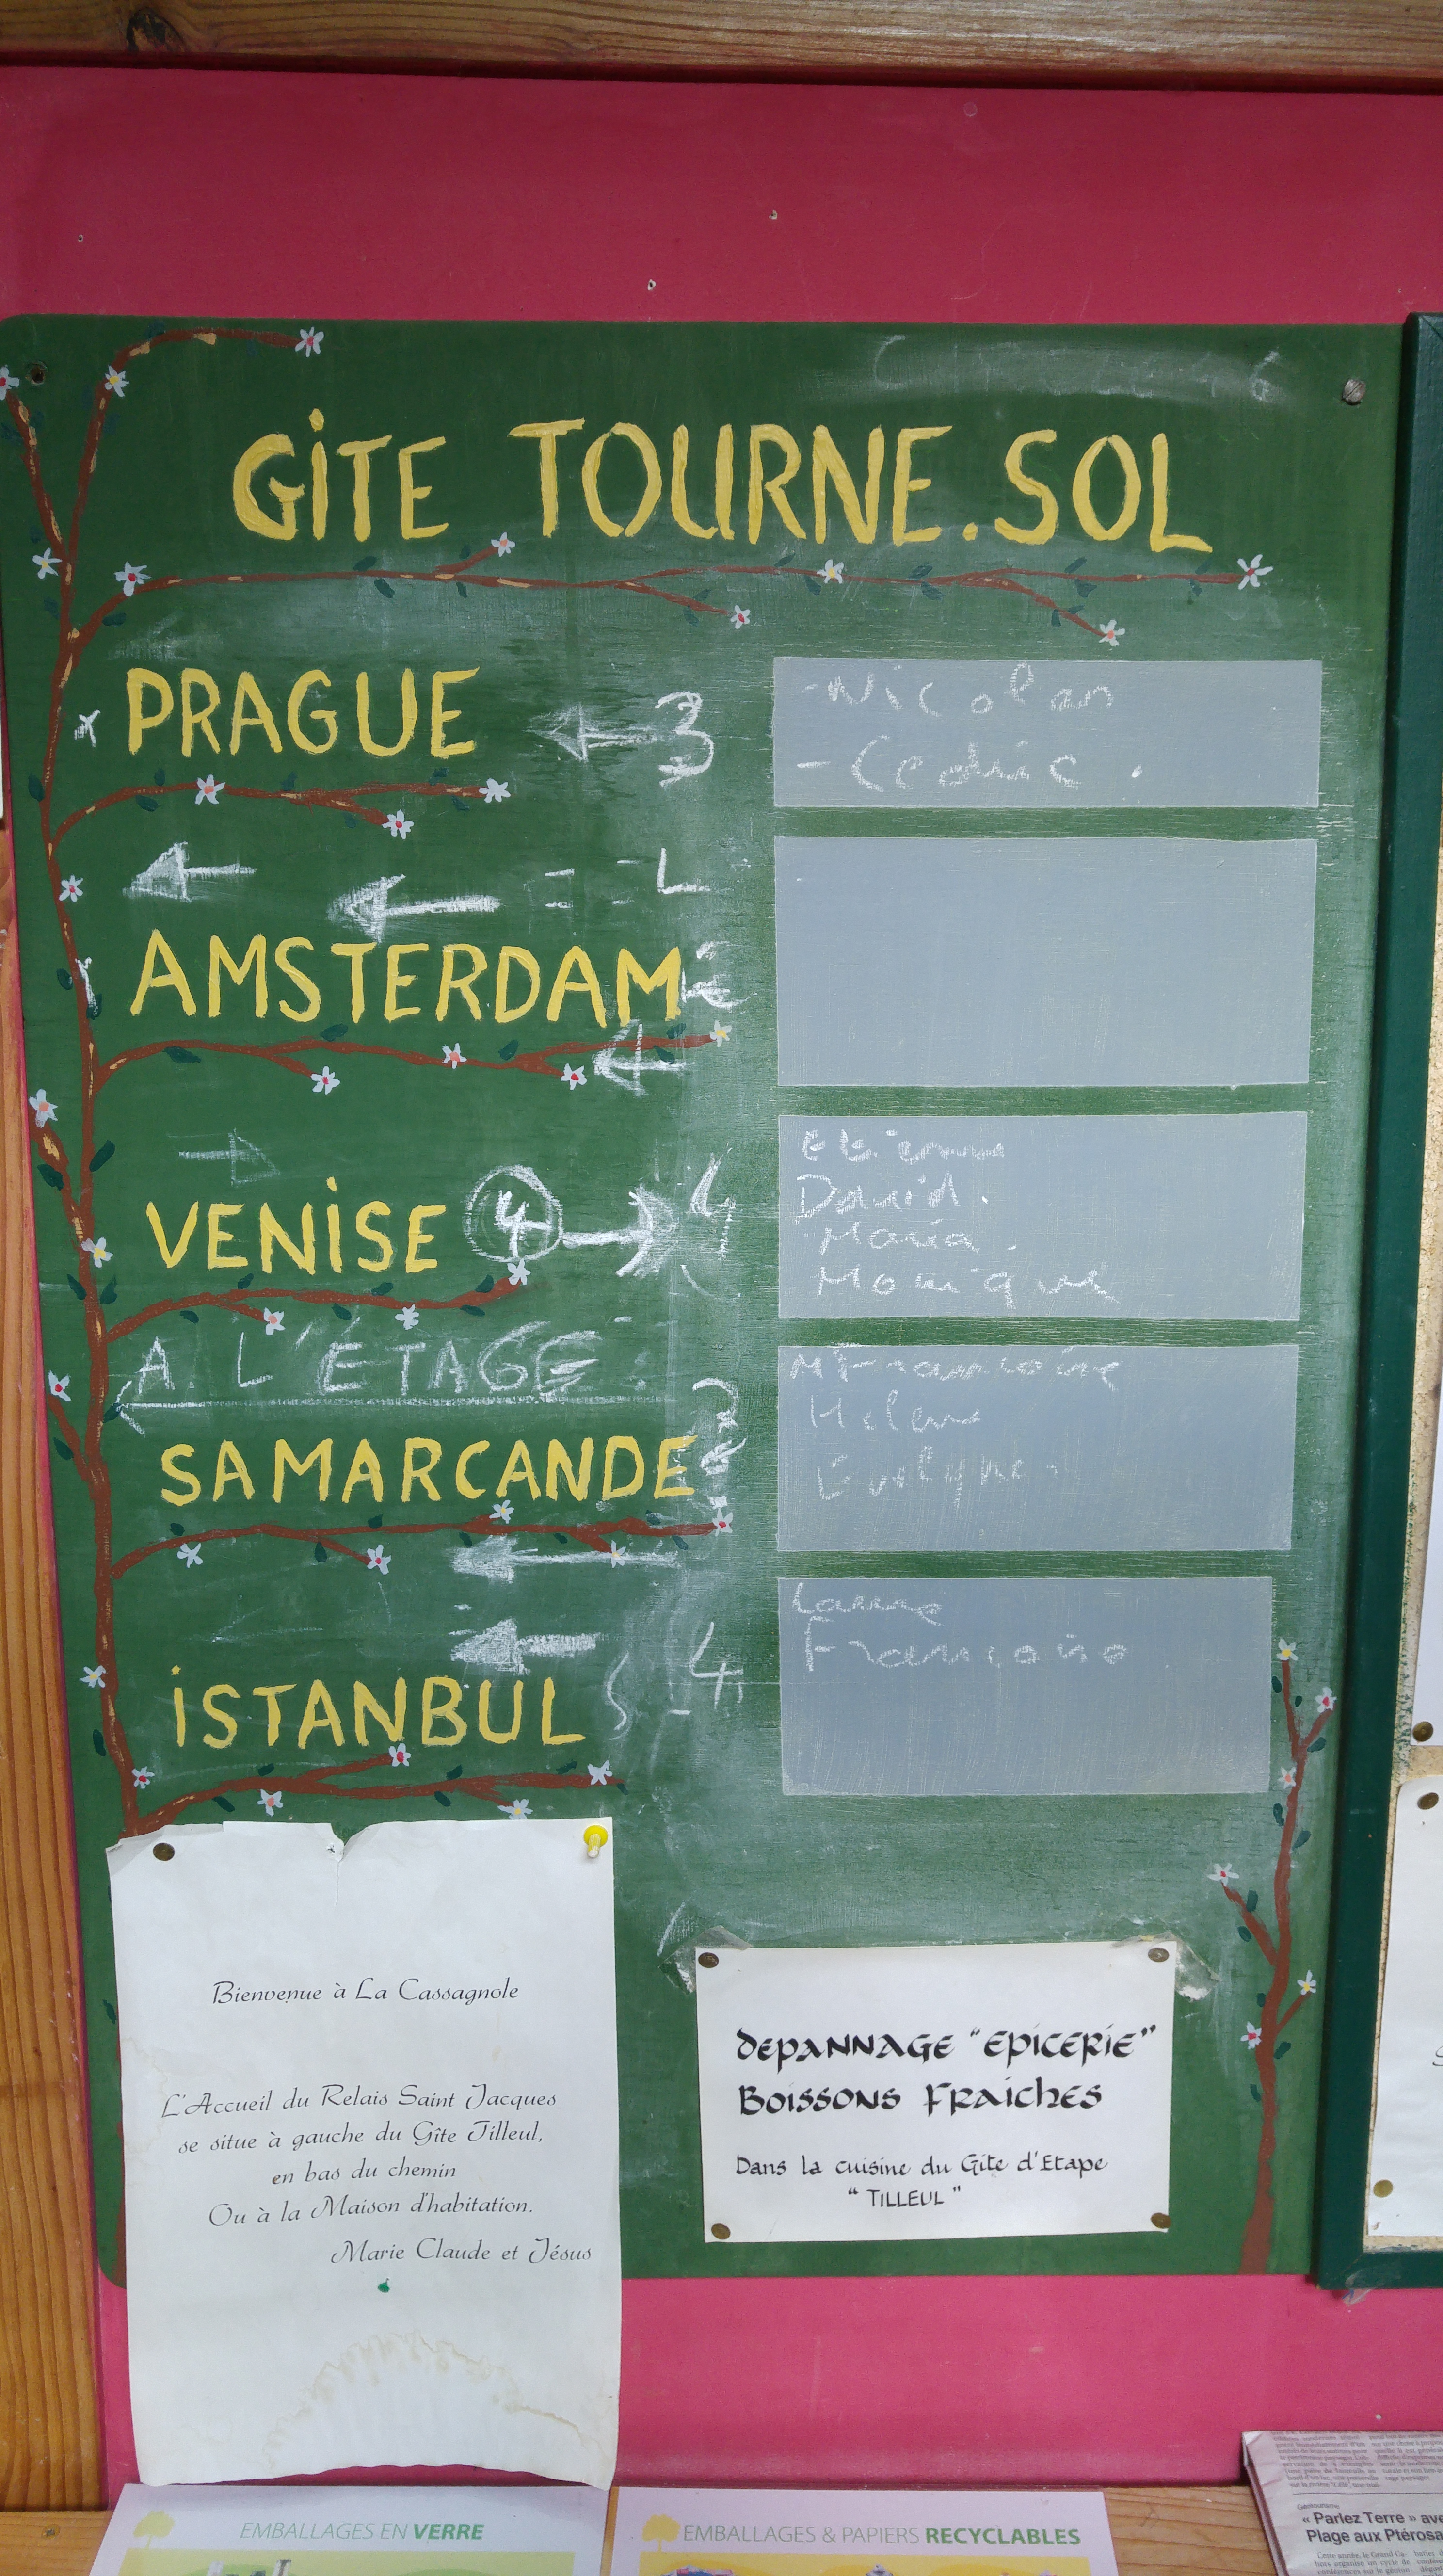 GiTE TOURNE.SOL
PRAGUE
3
- Nicolas
- Cedric.
AMSTERDAM
VENiSE 4 4
Etienne
David.
Maria.
Monique
A L'ÉTAGE :
SAMARCANDE
M Françoise
Helene
Evelyne
iSTANBUL 4
Laure
Françoise
Bienvenue à La Cassagnole
L'Accueil du Relais Saint Jacques
se situe à gauche du Gîte Tilleul,
en bas du chemin
Ou à la Maison d'habitation.
Marie Claude et Jésus
DEPANNAGE "EPICERIE"
BOISSONS FRAICHES
Dans la cuisine du Gite d'Etape
"TILLEUL"
EMBALLAGES EN VERRE
EMBALLAGES & PAPIERS RECYCLABLES
« Parlez Terre » ave
Plage aux Ptérosa